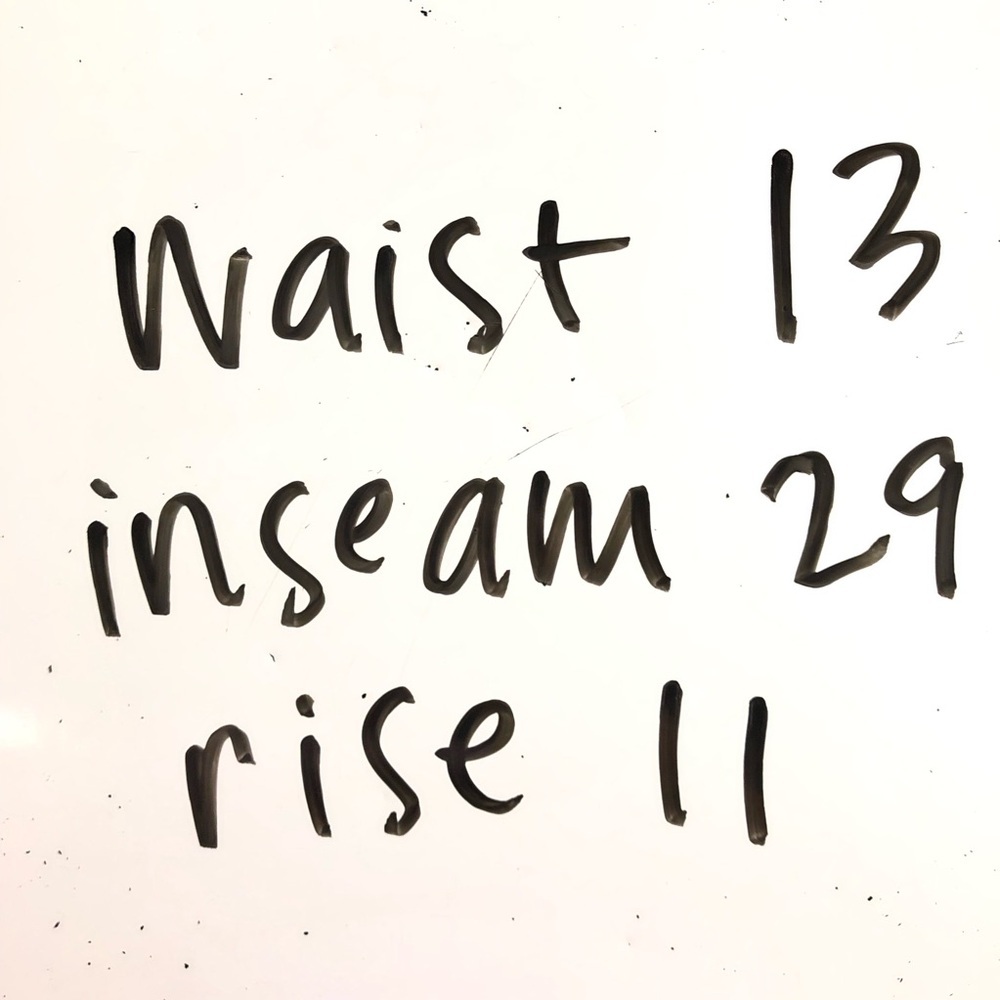 waist 13
inseam 29
rise 11